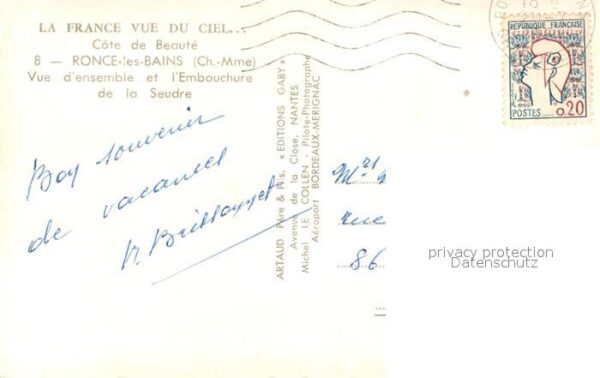 LA FRANCE VUE DU CIEL...
Côte de Beauté
8 — RONCE-les-BAINS (Ch.-Mme)
Vue d'ensemble et l'Embouchure
de la Seudre
Bon souvenir
de vacances
ARTAUD Père & Fils, « EDITIONS GABY »
Avenue de la Close, NANTES
Michel LE COLLEN - Pilote-Photographe
Aéroport BORDEAUX-MERIGNAC
RÉPUBLIQUE FRANÇAISE
0,20
POSTES
Mr
rue
86
privacy protection
Datenschutz